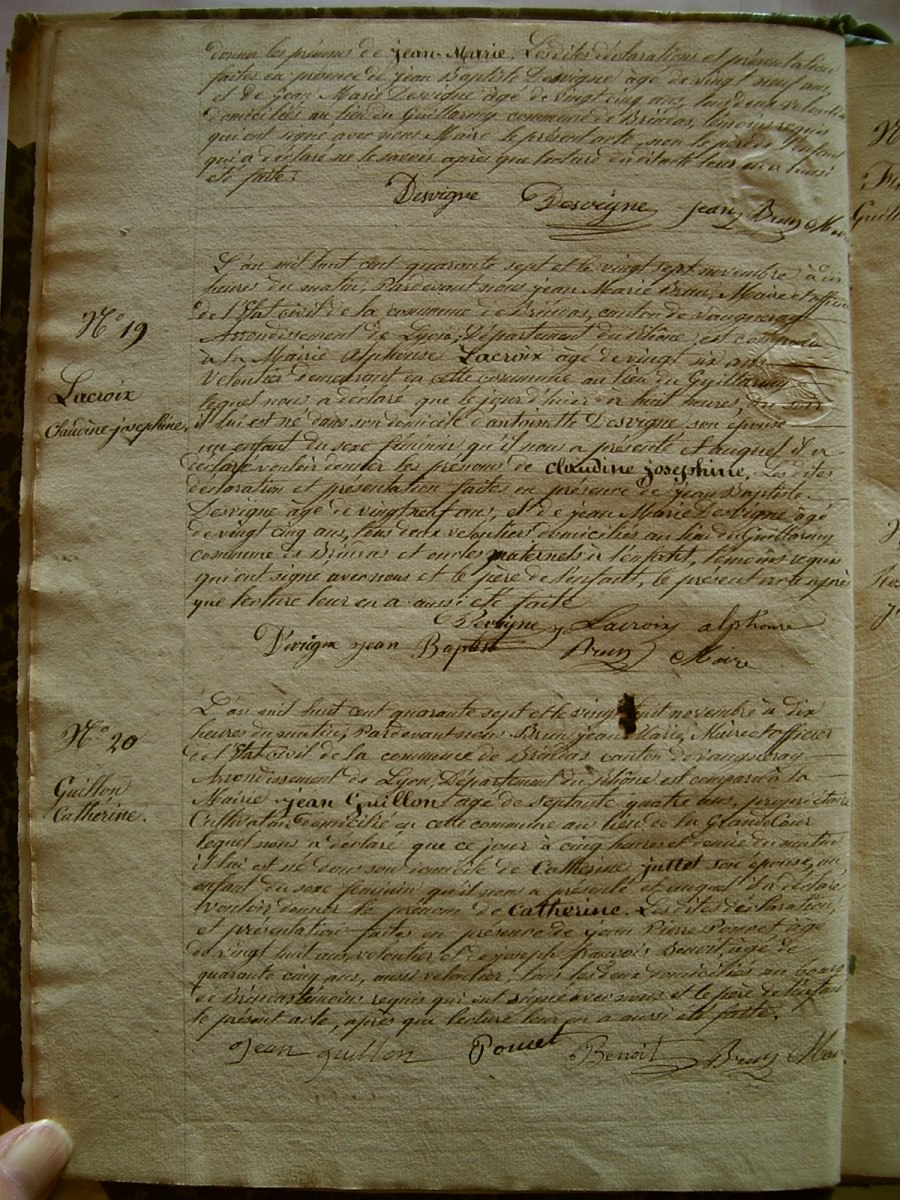 donner les prénoms de jean-Marie. Les dites déclarations et présentation
faites en présence de jean Baptiste Desvigne âgé de vingt neuf ans,
et de jean Marie Desvigne âgé de vingt cinq ans, tous deux veloutier
domiciliés au lieu du Guillarmy commune de Brindas, témoins requis
qui ont signé avec nous Maire le présent acte, non le père de l'enfant
qui a déclaré ne le savoir après que lecture du dit acte leur en a aussi
été faite.
Desvigne Desvigne jean Brun Maire
N° 19
Lacroix
Claudine josephine.
L'an mil huit cent quarante sept et le vingt sept novembre à dix
heures du matin, Pardevant nous jean Marie Brun, Maire et officier
de l'Etat civil de la commune de Brindas, canton de Vaugneray
Arrondissement de Lyon, Département du Rhône, est comparu
à la Mairie Alphonse Lacroix âgé de vingt six ans
Veloutier demeurant en cette commune au lieu du Guillarmy
lequel nous a déclaré que le jour d'hier à huit heures, du soir
il lui est né dans son domicile d'antoinette Desvigne son épouse
un enfant du sexe féminin qu'il nous a présenté et auquel il a
déclaré vouloir donner les prénoms de claudine josephine, Les dites
déclaration et présentation faites en présence de jean Baptiste
Desvigne âgé de vingt neuf ans, et de jean Marie Desvigne âgé
de vingt cinq ans, tous deux veloutiers domiciliés au lieu du Guillarmy
commune de Brindas et oncles maternels à l'enfant, témoins requis
qui ont signé avec nous et le père de l'enfant, le présent acte après
que lecture leur en a aussi été faite
Desvigne Lacroix alphonse
Dévigne jean Baptiste Brun Maire
N° 20
Guillon
Catherine.
L'an mil huit cent quarante sept et le vingt huit novembre à dix
heures du matin, Pardevant nous Brun jean Marie, Maire et officier
de l'Etat civil de la commune de Brindas canton de Vaugneray
Arrondissement de Lyon, Département du Rhône est comparu à la
Mairie jean Guillon âgé de septante quatre ans, propriétaire
Cultivateur domicilié en cette commune au lieu de la Grand Cour
lequel nous a déclaré que ce jour à cinq heures et demie du matin
il lui est né dans son domicile de Catherine jullet son épouse, un
enfant du sexe féminin qu'il nous a présenté et auquel il a déclaré
vouloir donner le prénom de Catherine. Les dites déclaration,
et présentation faites en présence de jean Pierre Poncet âgé
de vingt huit ans, veloutier et de joseph françois Benoit, âgé de
quarante cinq ans, aussi veloutier tous les deux domiciliés au bourg
de Brindas témoins requis qui ont signé avec nous et le père de l'enfant
le présent acte, après que lecture leur en a aussi été faite.
Jean guillon Poncet Benoit Brun Maire